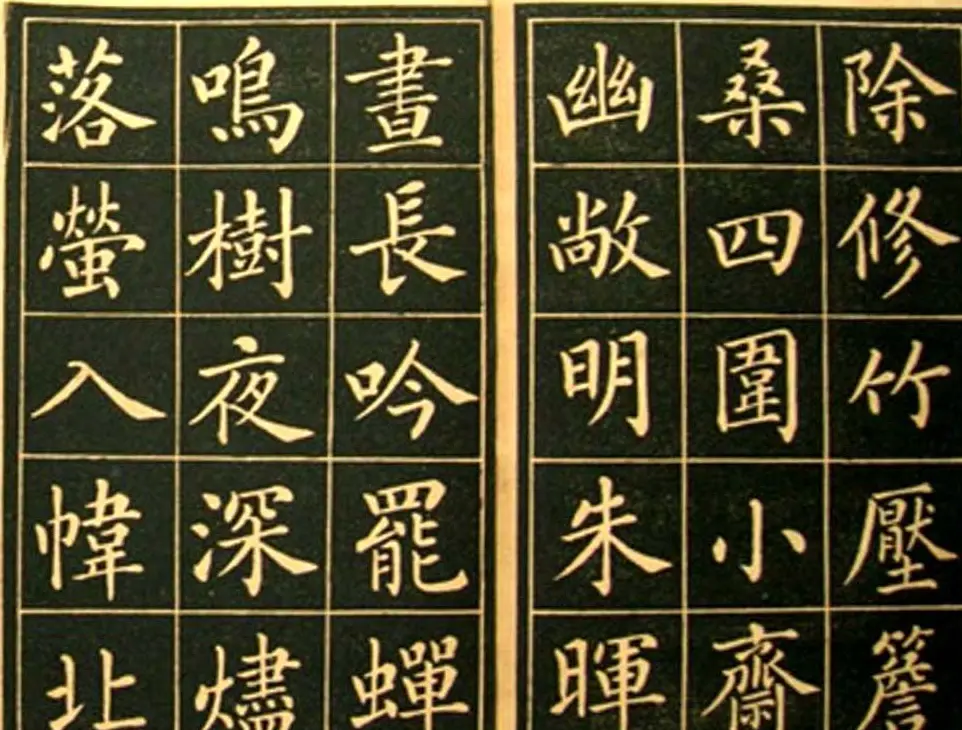 除修竹壓簷
桑四圍小齋
幽敞明朱暉
晝長吟罷蟬
鳴樹夜深燼
落螢入幃北